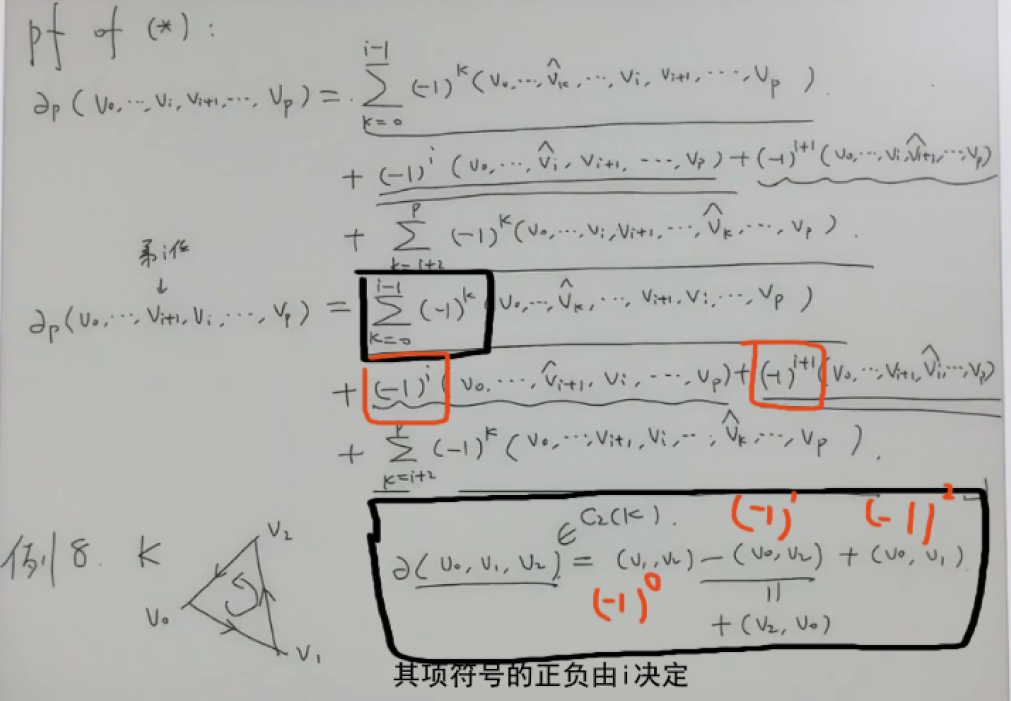 pf of (*):
∂p(v0,…,vi,vi+1,…,vp) = ∑_{k=0}^{i-1} (-1)^k (v0,…,v̂k,…,vi,vi+1,…,vp).
+ (-1)^i (v0,…,v̂i,vi+1,…,vp) + (-1)^{i+1} (v0,…,vi,v̂i+1,…,vp)
+ ∑_{k=i+2}^{p} (-1)^k (v0,…,vi,vi+1,…,v̂k,…,vp).
第i位
↓
∂p(v0,…,vi+1,vi,…,vp) = ∑_{k=0}^{i-1} (-1)^k (v0,…,v̂k,…,vi+1,vi,…,vp)
+ (-1)^i (v0,…,v̂i+1,vi,…,vp) + (-1)^{i+1} (v0,…,vi+1,v̂i,…,vp)
+ ∑_{k=i+2}^{p} (-1)^k (v0,…,vi+1,vi,…,v̂k,…,vp).
∈ C2(K). (-1)^1 (-1)^2
例8. K v2
∂(v0,v1,v2) = (v1,v2) - (v0,v2) + (v0,v1)
(-1)^0 ||
v0 + (v2,v0)
v1
其项符号的正负由i决定